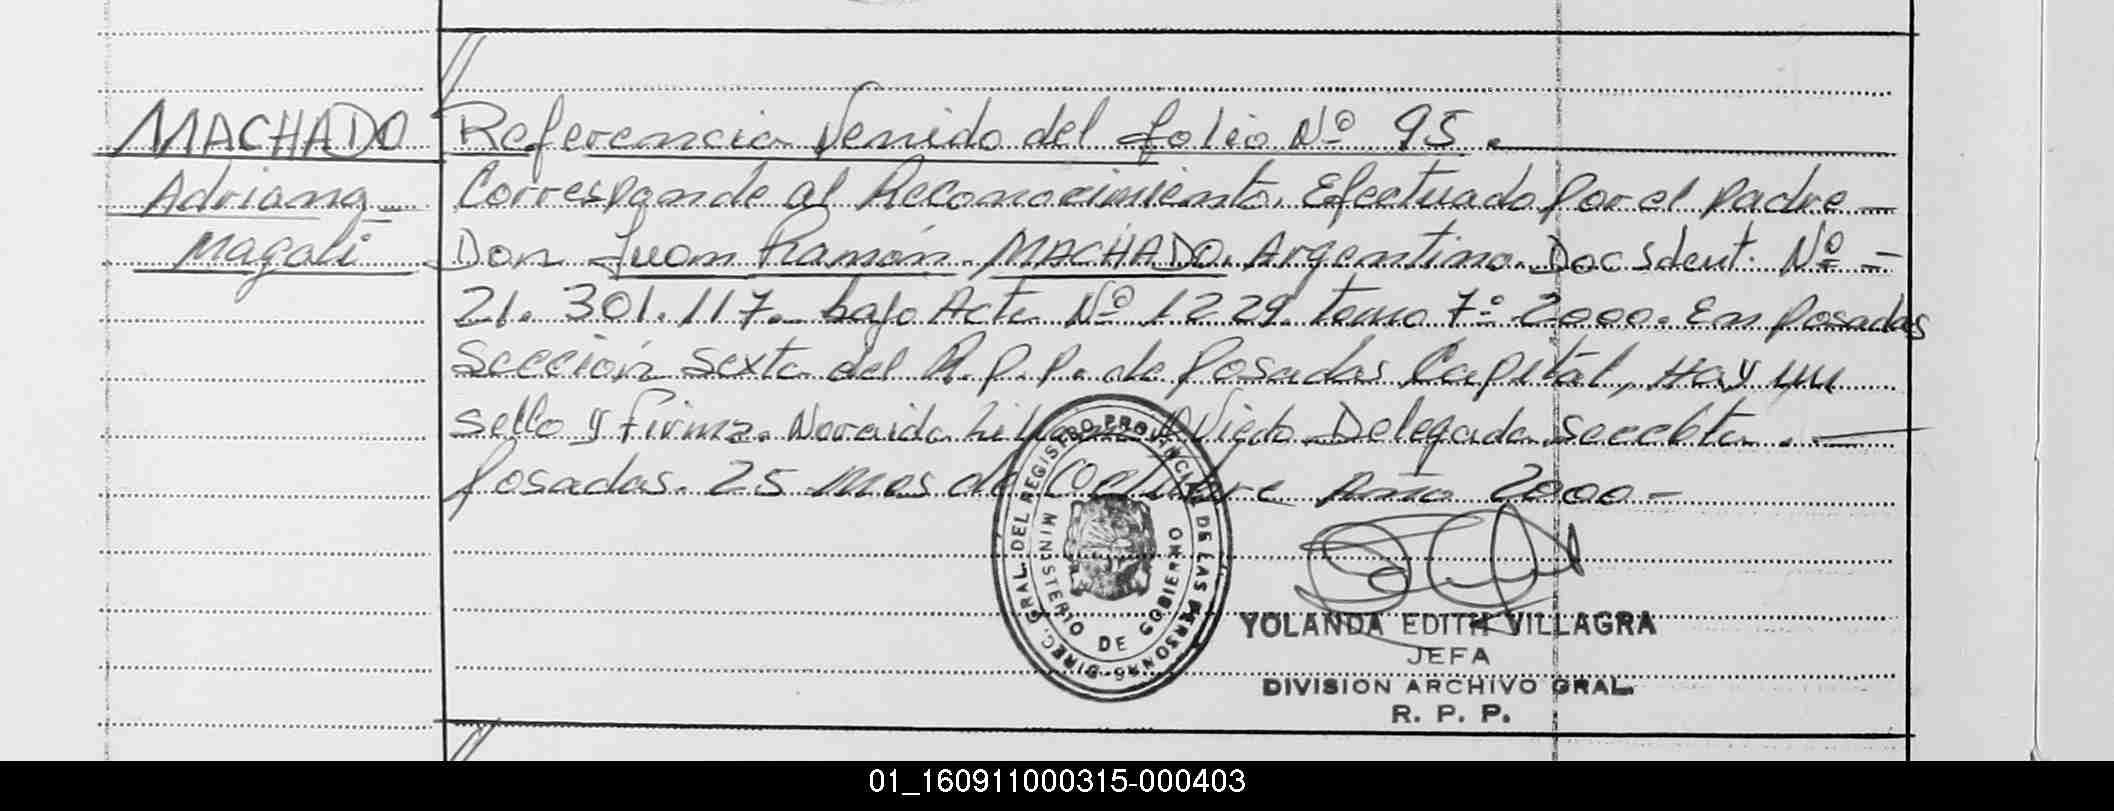 MACHADO
Adriana
Magali
Referencia Venido del folio Nº 95.
Corresponde al Reconocimiento. Efectuado por el padre —
Don Juan Ramón MACHADO. Argentino. Doc Ident. Nº —
21.301.117. bajo Acta Nº 1229. tomo 7º 2000. En Posadas
Sección Sexta del R.P.P. de Posadas Capital, Hay un
sello y firma. Noraida Oviedo. Delegada.
Posadas. 25 mes de Octubre Año 2000 —
DIREC. GRAL. DEL REGISTRO PROVINCIAL DE LAS PERSONAS
MINISTERIO DE GOBIERNO
YOLANDA EDITH VILLAGRA
JEFA
DIVISION ARCHIVO GRAL.
R. P. P.
01_160911000315-000403